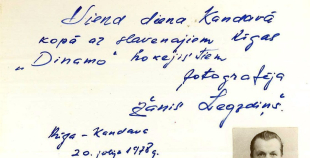 Viena diena Kandavā
kopā ar slavenajiem Rīgas
„Dinamo" hokejistiem
fotografēja
Žānis Legzdiņš.
Rīga – Kandava
20. jūlijs 1978 g.